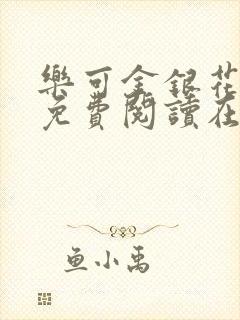 樂可金銀花
免費閱讀在
鱼小禹